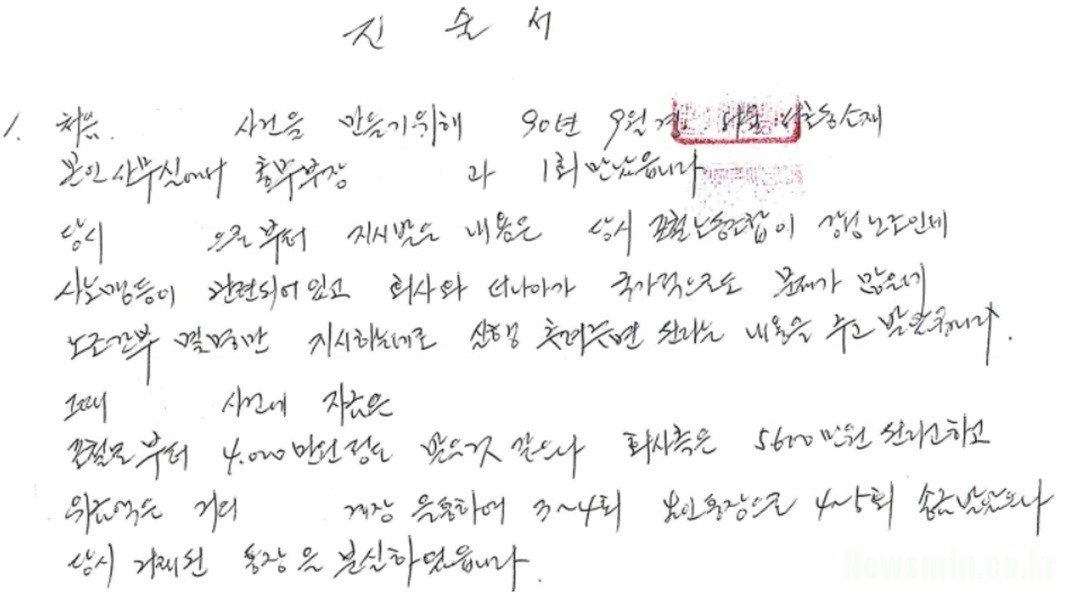 진 술 서
1. 처음 사건을 만들기위해 90년 9월경 서울 서초동소재
본인 사무실에서 총무부장 과 1회 만났읍니다
당시 으로부터 지시받은 내용은 당시 포철노동조합이 강성노조인데
사노맹등이 관련되어있고 회사와 더나아가 국가적으로도 문제가 많은데
노조간부 몇명만 지시하는데로 실행 해주면 된다는 내용을 받았읍니다.
그때 사건에 자금은
포철로부터 4,000만원정도 받은것 같으나 회사측은 5600만원 된다고하고
위금액은 거의 계장 을통하여 3~4회 본인통장으로 4~5회 송금받았으나
당시 거래된 통장은 분실하였읍니다.
Newsmin.co.kr